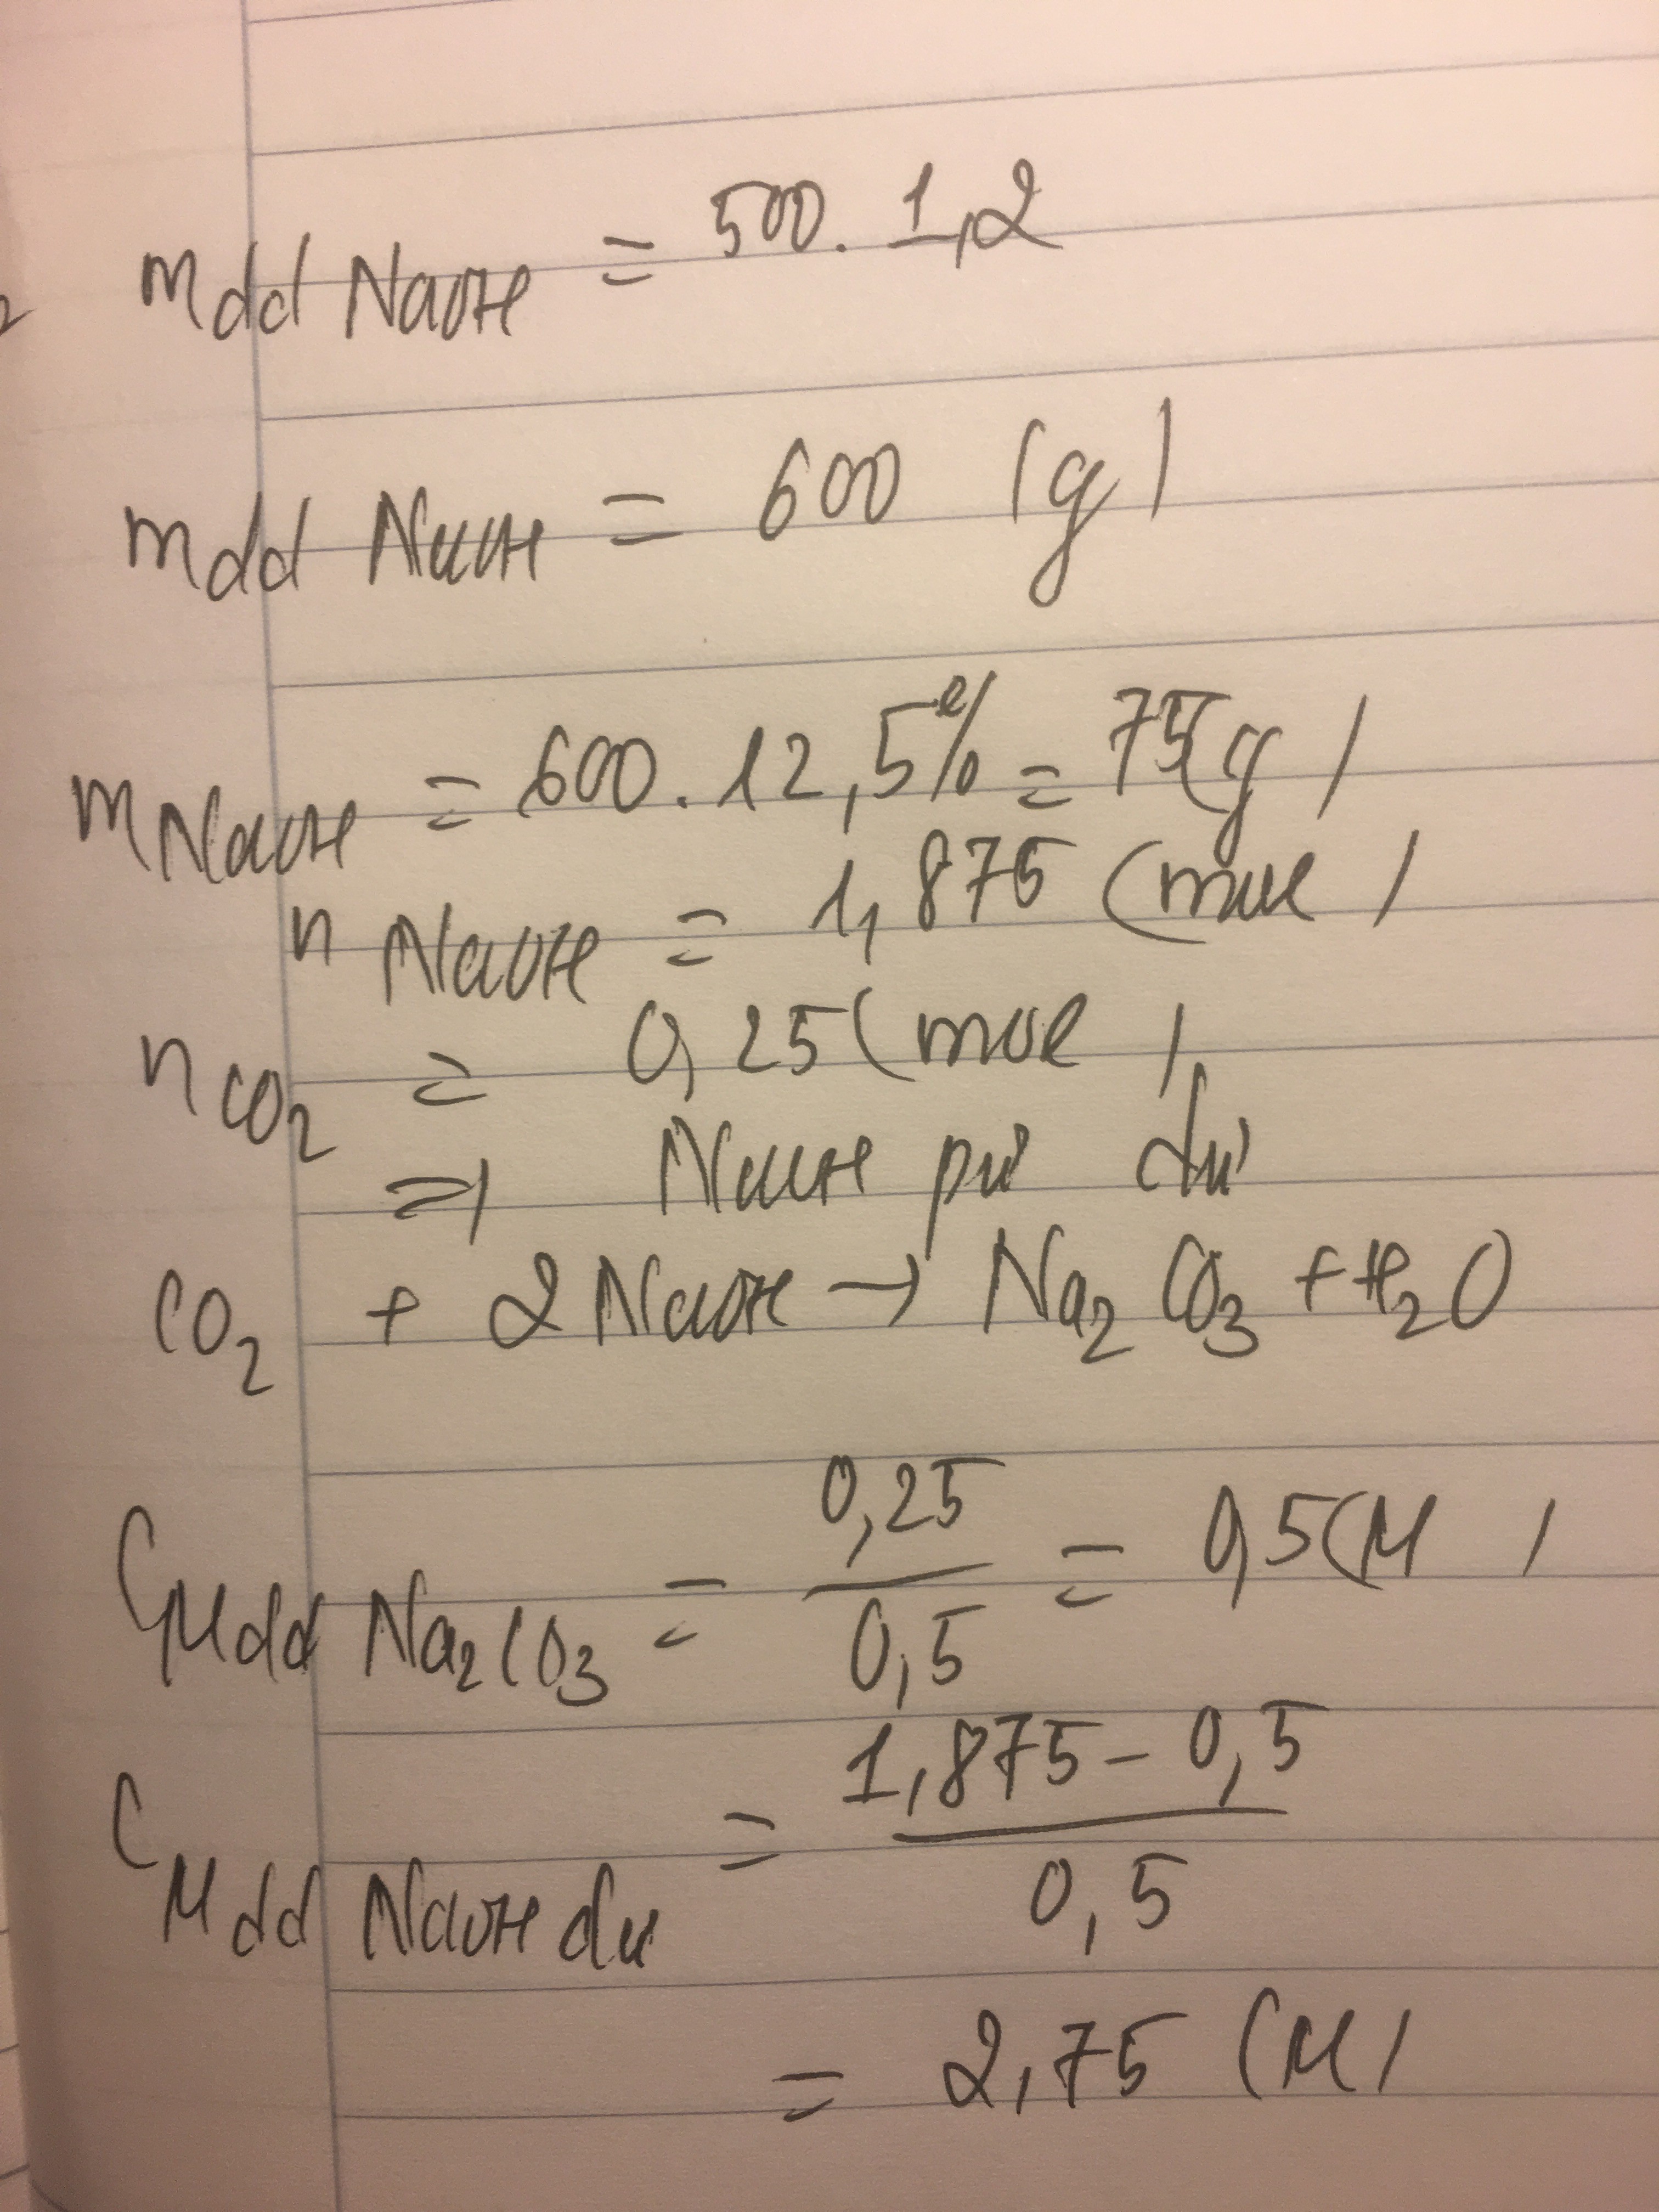 m dd NaOH = 500. 1,2
m dd NaOH = 600 (g)
m NaOH = 600. 12,5% = 75(g)
n NaOH = 1,875 (mol)
n CO2 = 0,25 (mol)
=> NaOH pư dư
CO2 + 2 NaOH → Na2CO3 + H2O
CM dd Na2CO3 = 0,25 / 0,5 = 0,5 (M)
CM dd NaOH dư = 1,875 - 0,5 / 0,5
= 2,75 (M)